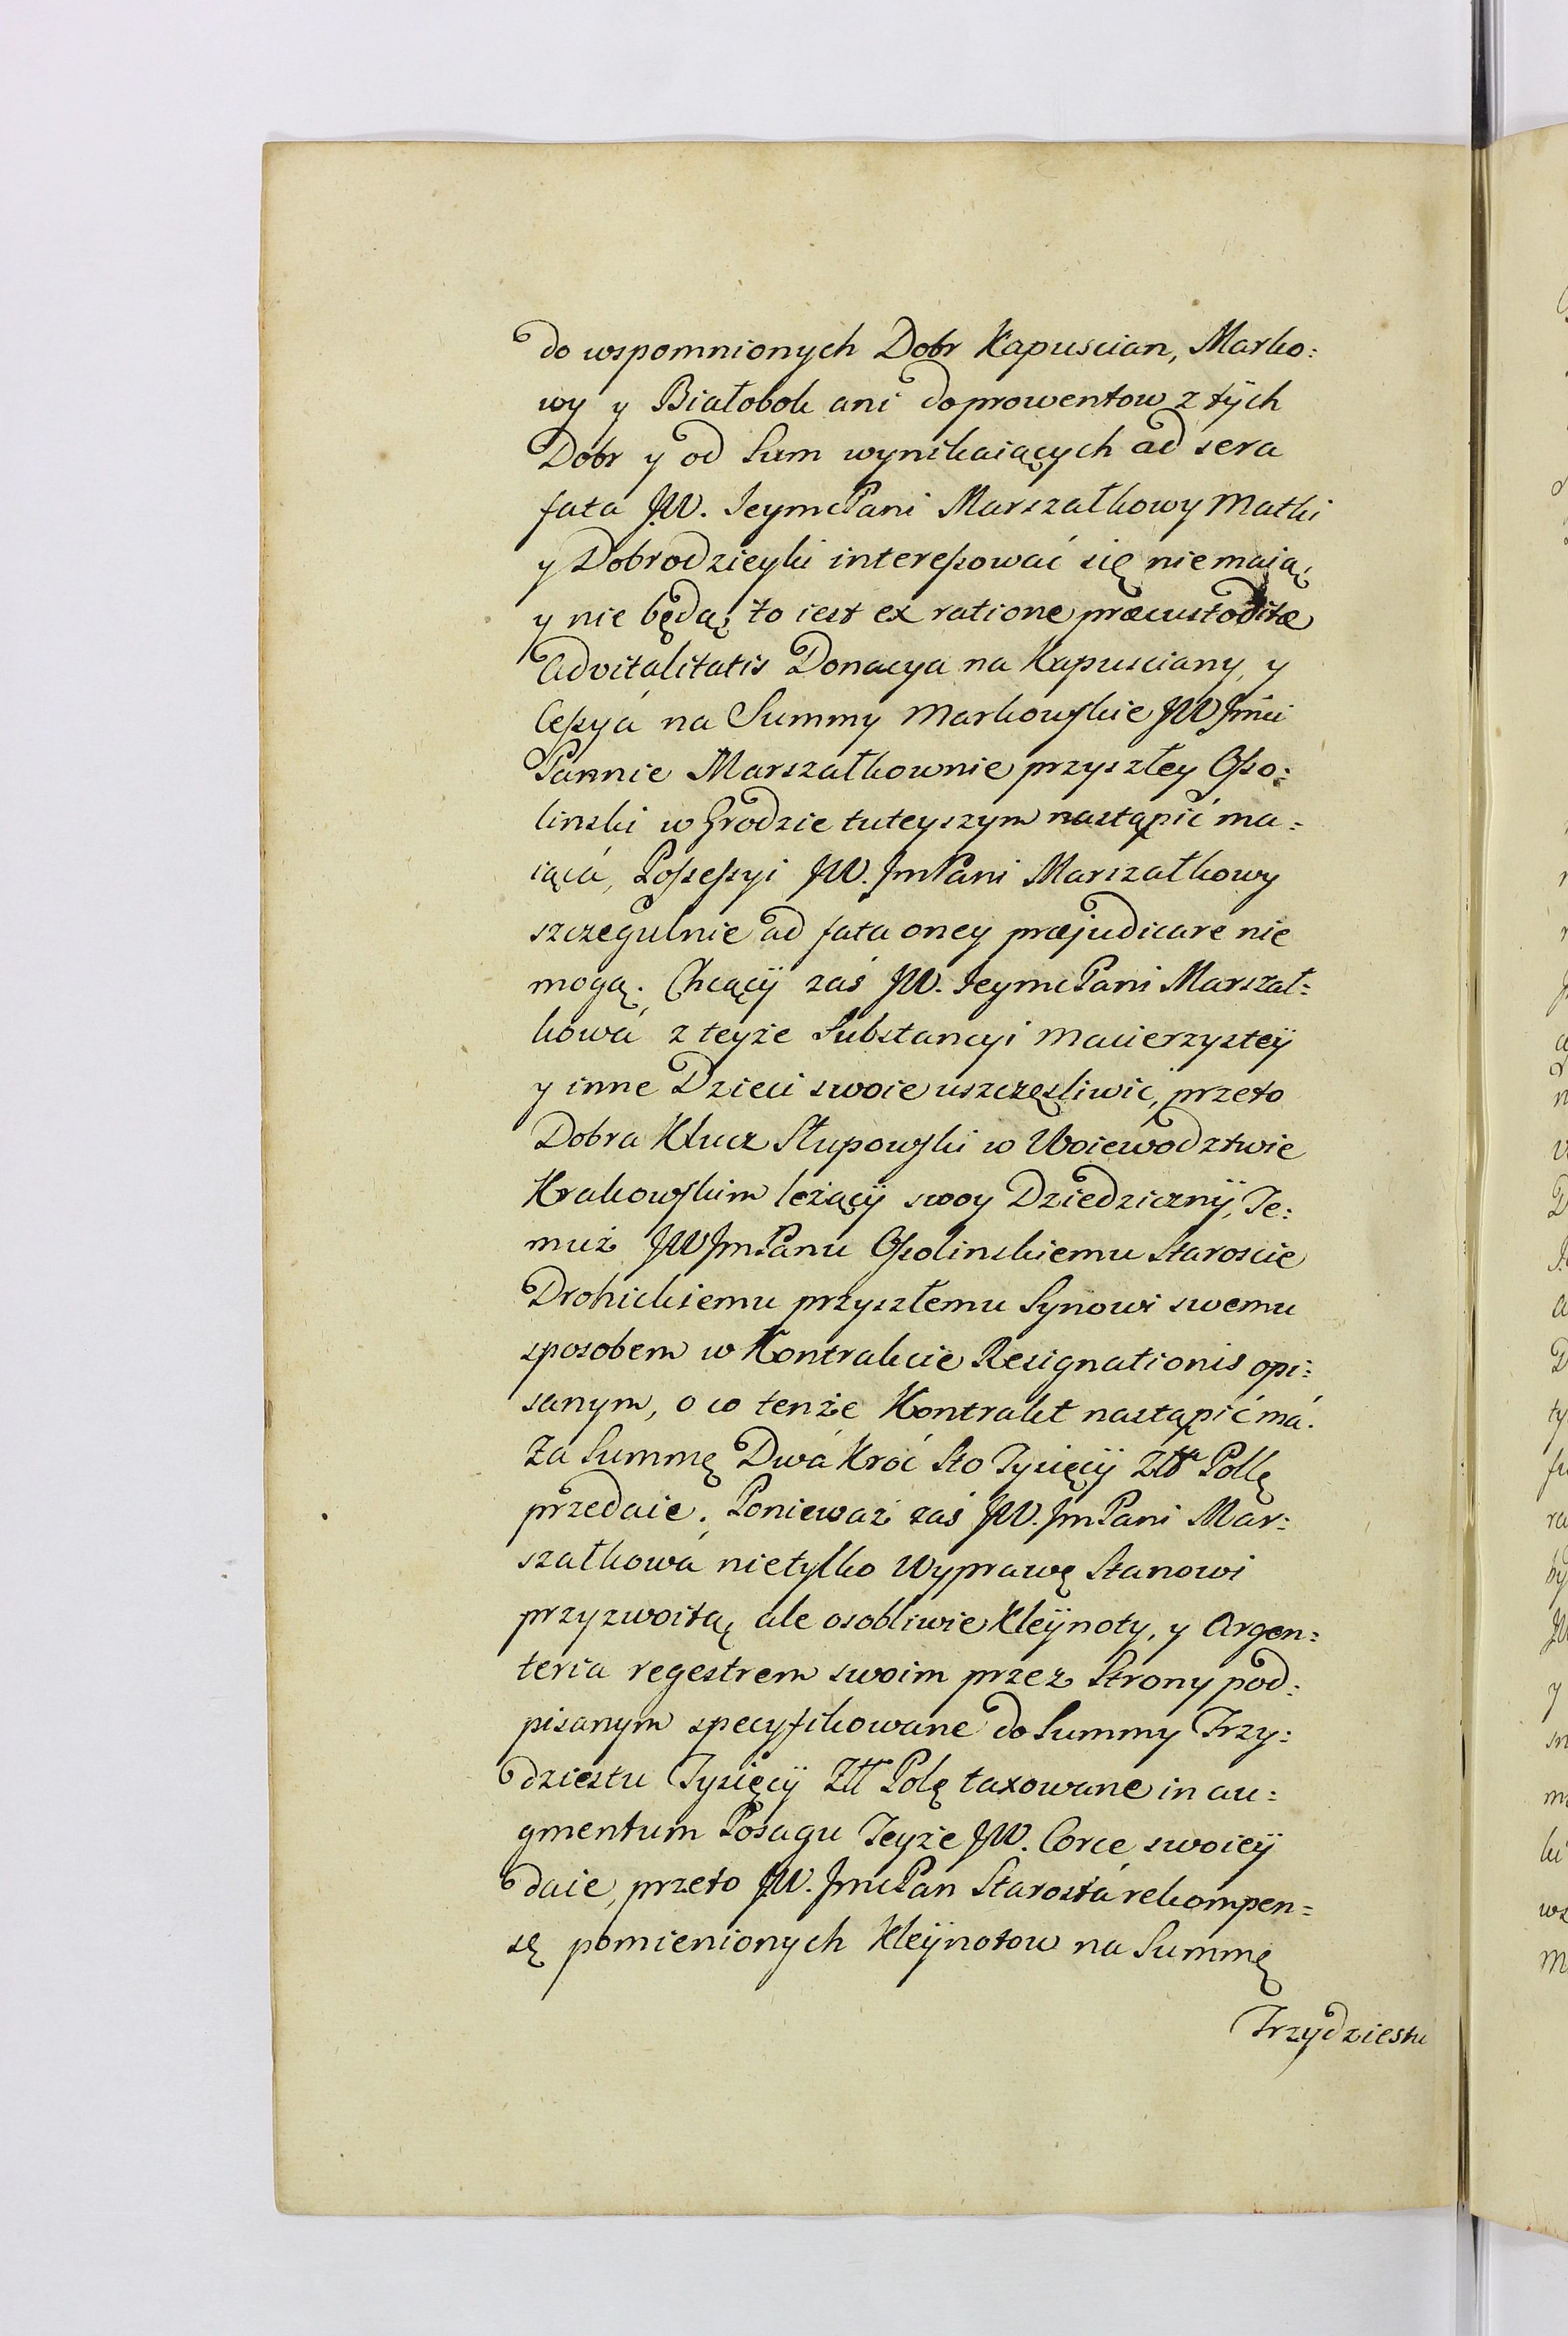 do wspomnionych Dobr Kapuscian, Marko:
wy y Białobok ani do prowentow z tÿch
Dobr y od Sum wynikaiących ad sera
fata JW. JeymcPani Marszałkowy Matki
y Dobrodzieyki interessować się nie maią,
y nie będą; to iest ex ratione præcustoditæ
Advitalitatis Donacya na Kapusciany, y
Cessyá na Summy Markowskie JW Jmci
Pannie Marszałkownie przyszłey Osso:
linski w Grodzie tuteyszym nastąpić ma:
iącá, Possessyi JW. JmPani Marszałkowy
szczegulnie ad fata oney præjudicare nie
mogą. Chcącÿ zaś JW. JeymcPani Marszał:
kowá z teyże Substancyi Macierzysteÿ
y inne Dzieci swoie uszczęśliwić, przeto
Dobra Klucz Słupowski w Woiewodztwie
Krakowskim leżącÿ swoy Dziedzicznÿ, Te:
muż JW JmPanu Ossolinskiemu Staroscie
Drohickiemu przyszłemu Synowi swemu
sposobem w Kontrakcie Resignationis opi:
sanym, o co tenże Kontrakt nastąpić má.
Za Summę Dwá Kroć Sto Tysięcÿ Złł Pollę
przedaie. Ponieważ zaś JW. JmPani Mar:
szałkowá nietylko Wyprawę Stanowi
przyzwoitą, ale osobliwie Kleÿnoty, y Argen:
teria regestrem swoim przez Strony pod:
pisanym specyfikowane do Summy Trzy:
dziestu Tysięcÿ Złł Polę taxowane in au:
gmentum Posagu Teyże JW. Corce swoieÿ
daie, przeto JW. JmcPan Starostá rekompen:
sę pomienionych Kleÿnotow na Summę
Trzydziestu